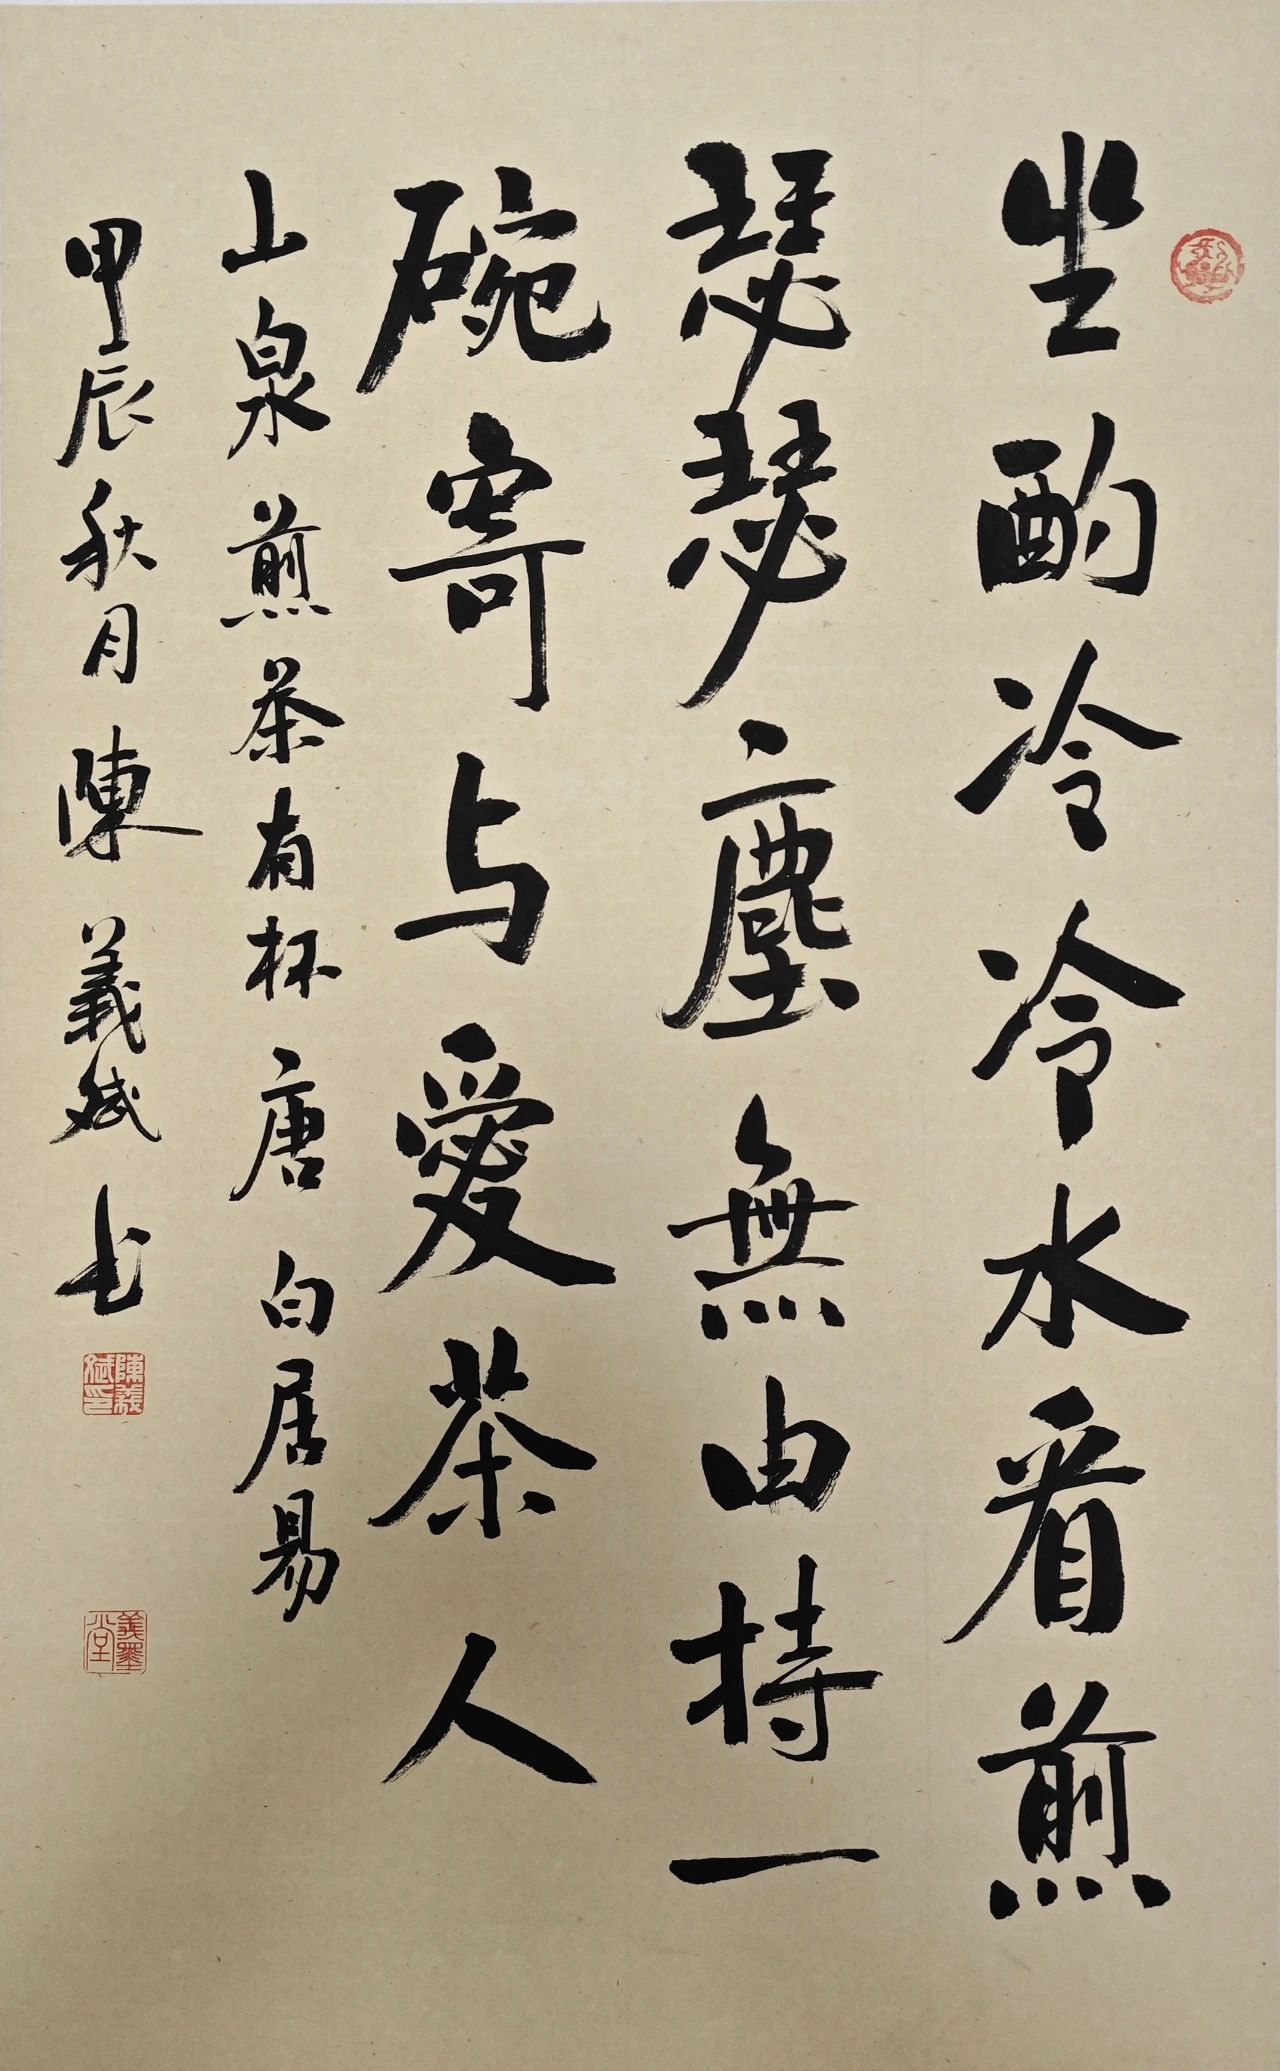 坐酌冷冷水看煎
瑟瑟塵無由持一
碗寄与愛茶人
山泉煎茶有杯唐白居易
甲辰秋月陳義斌书
陳義斌印
義墨堂